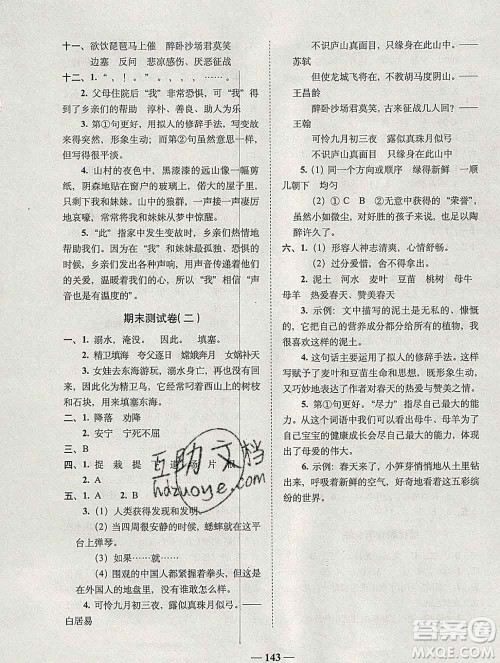 十一、欲饮琵琶马上催 醉卧沙场君莫笑
边塞 反问 悲凉感伤、厌恶征战
十二、1. “，”“，”“。”
2. 父母住院后“我”非常恐惧，也可以得
到了乡亲们的帮助 淳朴、善良、助人为乐
3. 第①句更好。用拟人的修辞手法，写出
来的按序，形象生动；而第②句虽然意思一
样，但却表现不出这一点。
4. 山村的夜色中，黑漆漆的远山像一幅剪
纸，阴森地贴在窗户的玻璃上，偌大的屋子里，
只剩下我和妹妹。山里的狼群，一声接一声凄厉
地哀嚎，令我和妹妹非常恐惧。
5. “此”指家中发生变故时，乡亲们热情地
帮助我们，使“我”和妹妹不再孤单、恐惧的时
候。乡亲们关心、爱护“我”和妹妹，所以“我”
说“声音传递给我的是爱的温暖，原来，声音也
是有温度的”。
期末测试卷（二）
一、1. 溺水，淹没。 因此 填塞。
2. 精卫填海 夸父逐日 嫦娥奔月 女娲补天
3. 女娃去东海游玩，溺水身亡，再也没有
回来，因此化成为精卫鸟，常常叼着西山上的树枝
和石块，用来填塞东海。
二、1. 降落 劝降
2. 安宁 宁死不屈
三、B
四、1. 捉 栽 提
2. A
五、1. A 2. B
3.（1）人类获得发现和发明。
（2）当四周很安静的时候，蟋蟀就在这个平
台上弹琴。
（3）如果……就……
（4）围观的中国人都紧握着拳头，但是，
在外国人的地盘里，谁又敢怎么样呢？
4. 可怜九月初三夜，露似真珠月似弓。——
白居易
不识庐山真面目，只缘身在此山中。——
苏轼
但使龙城飞将在，不教胡马度阴山。——
王昌龄
醉卧沙场君莫笑，古来征战几人回？——
王翰
可怜九月初三夜 露似真珠月似弓
不识庐山真面目 只缘身在此山中
5.（1）同一个方向或顺序 绿得新鲜 一顺
儿朝下 均匀
（2）① C B ②无意中获得的“荣誉”，
虽然微小，却能对成长中的孩子来说，也足以令其
陶醉许久。
六、1.（1）形容人神志清爽，心情舒畅。
（2）过分爱惜 舍不得。
2. 泥土 河水 麦叶 豆苗 桃树 母牛
母羊 热爱春天 赞美春天
3. 示例：文中描写的泥土是无私奉献的，
他把自己的营养成分都给了植物，让它们茁壮
成长。
4. 这句话主要运用了拟人的修辞手法，这样
写赋予了麦叶和豆苗生命，更加形象生动地写出
了作者对春天的热爱与赞美之情。
5. 第①句更好。“尽力”指尽了自己最大的
能力，从这个词语中我们可以看出母牛、母羊为
了自己宝宝的健康成长可以尽自己最大的能力，体
现出了母爱的伟大。
6. 示例：春天来了，小笋芽悄悄地从土里钻
出来，呼吸着新鲜的空气，好奇地看着这五彩缤
纷的世界。
互助文档
hdzuoye.com
143
答案圈
MXQE.COM